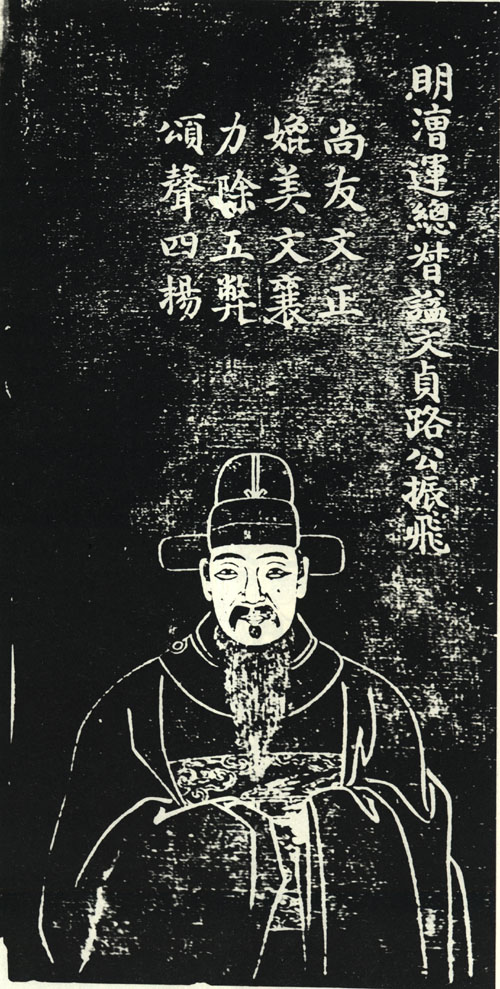 明漕運總督諡文貞路公振飛
尚友文正
媲美文襄
力除五弊
頌聲四揚